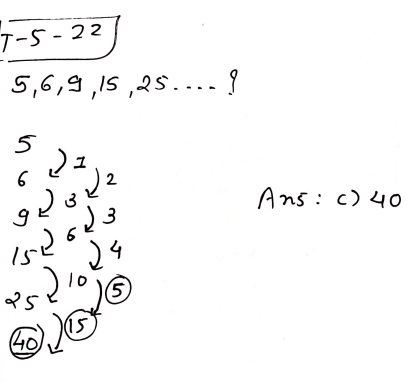 T-5-22
5,6,9,15,25....?
5
1
6
2
3
9
3
6
15
4
10
25
5
15
40
Ans: c) 40